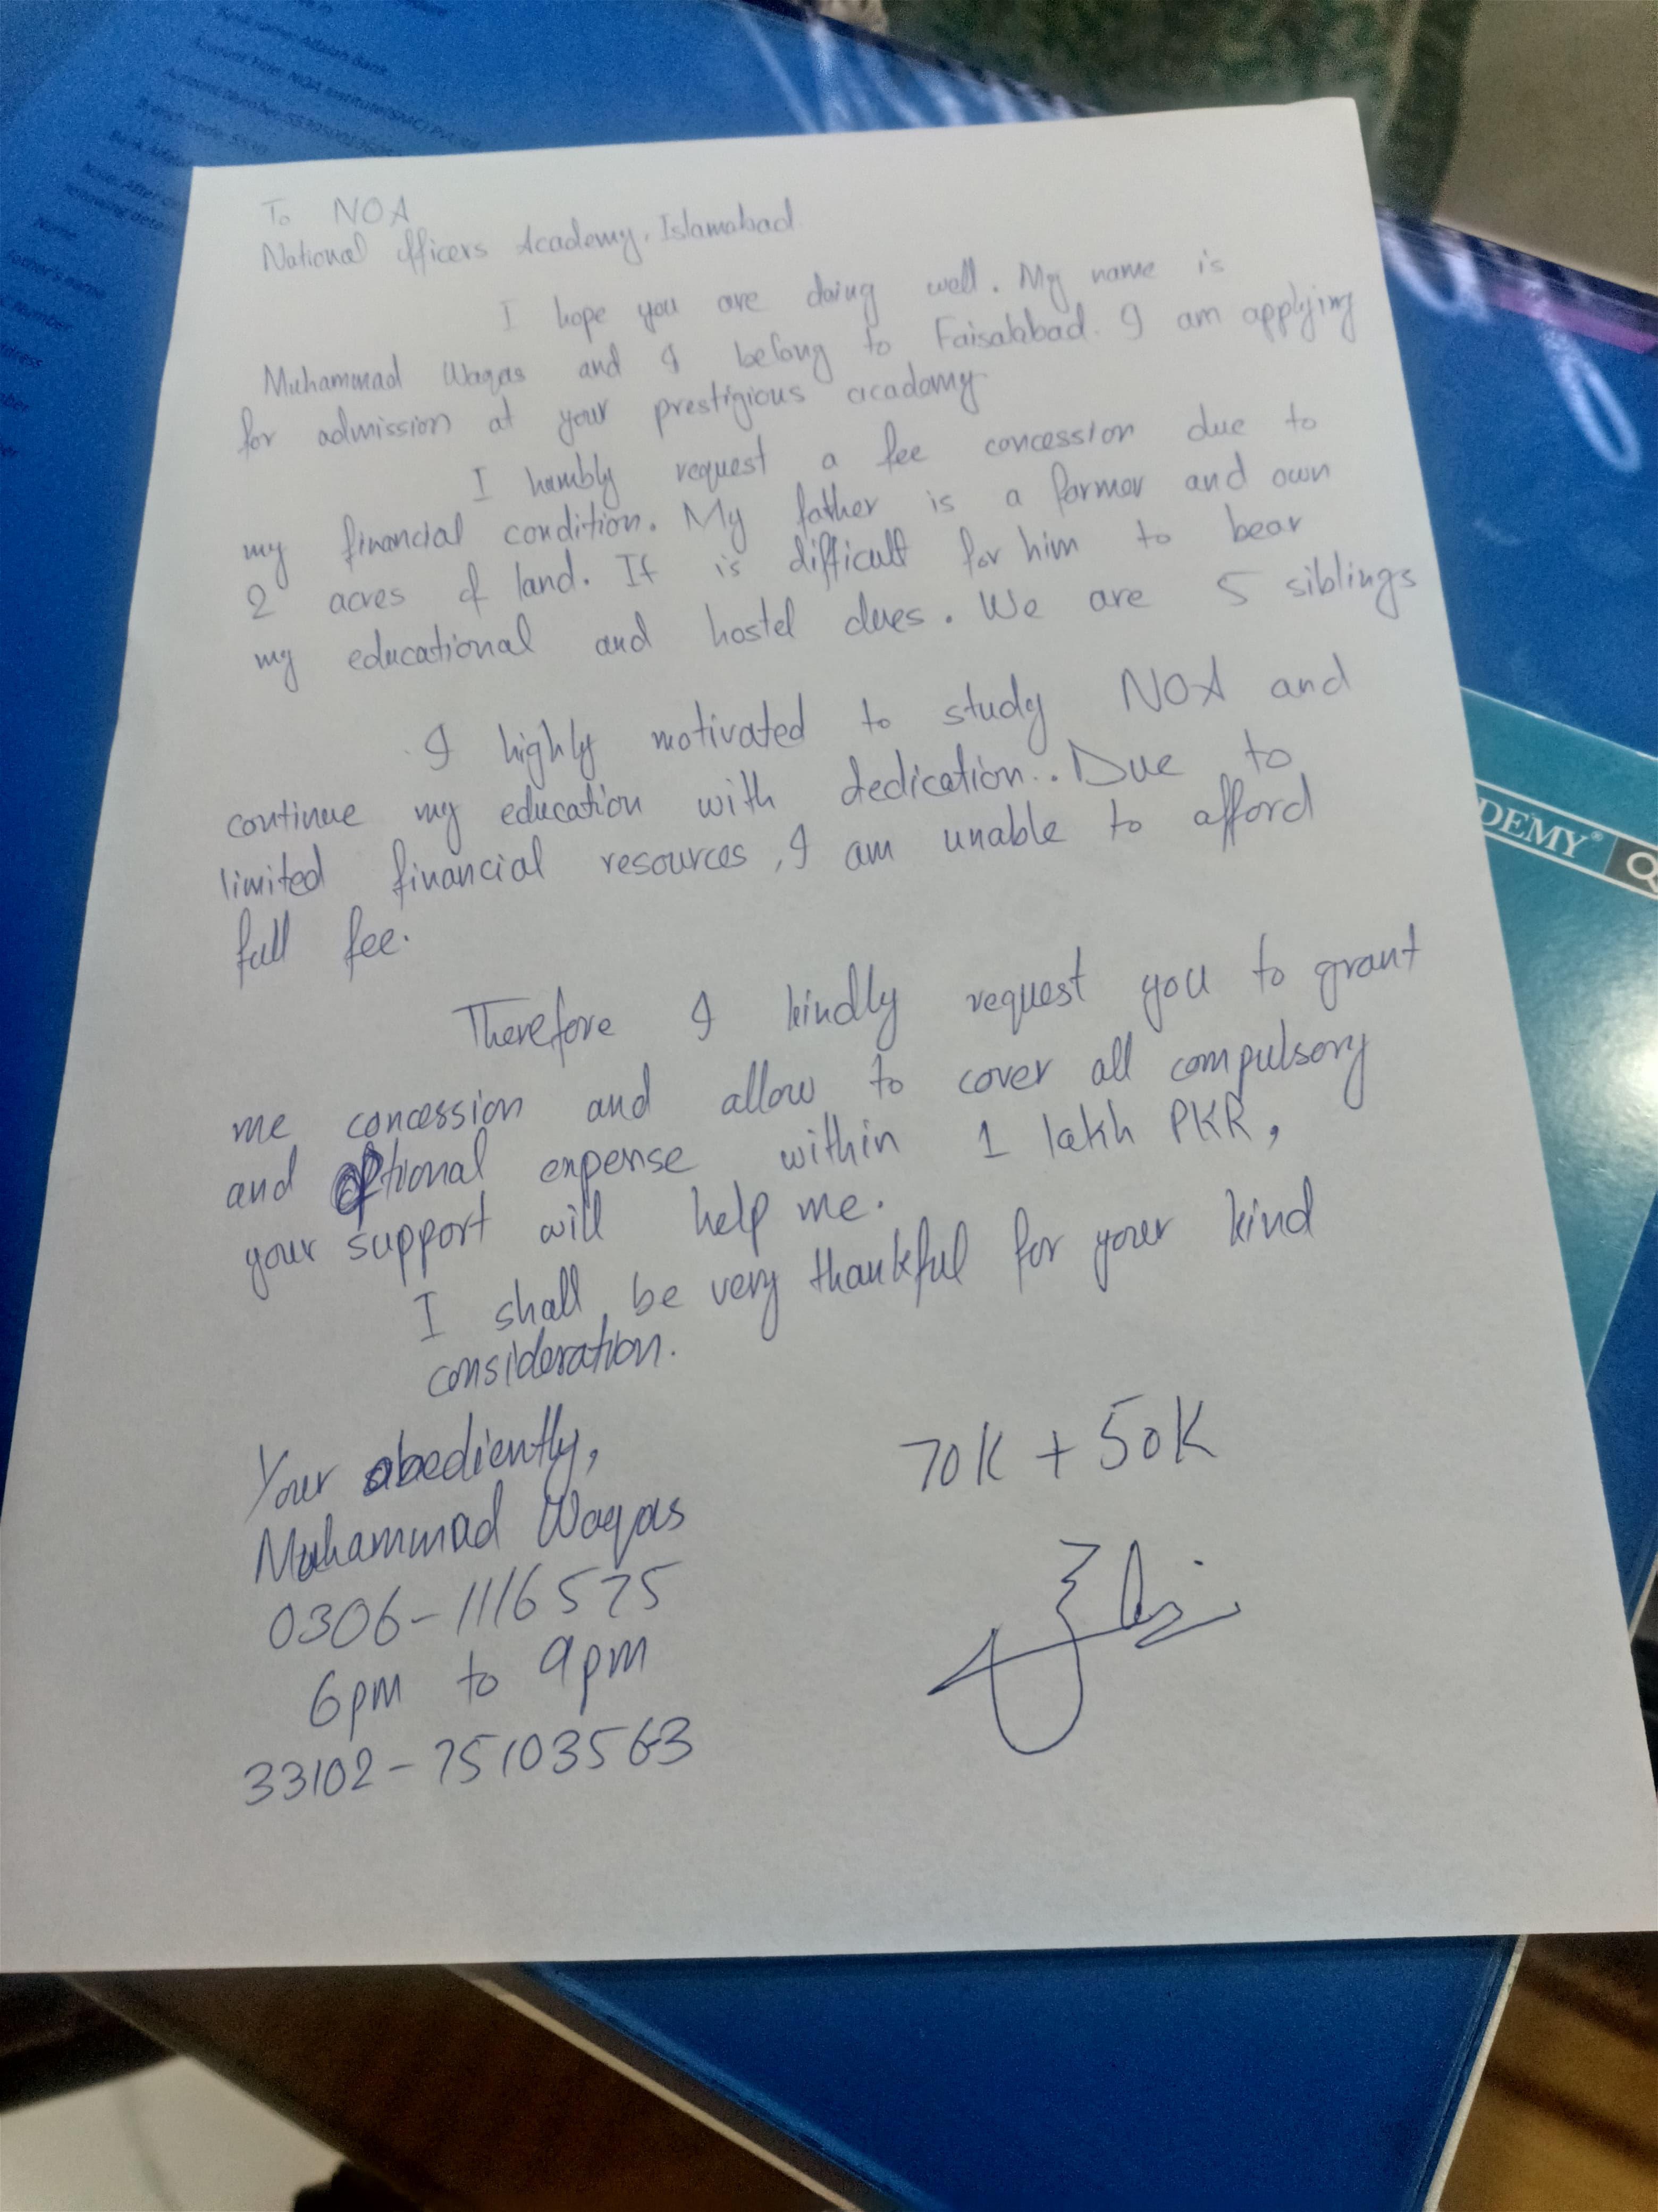 To NOA
National Officers Academy, Islamabad.
I hope you are doing well. My name is
Muhammad Waqas and I belong to Faisalabad. I am applying
for admission at your prestigious academy
I humbly request a fee concession due to
my financial condition. My father is a farmer and own
2 acres of land. It is difficult for him to bear
my educational and hostel dues. We are 5 siblings
I highly motivated to study NOA and
continue my education with dedication.. Due to
limited financial resources, I am unable to afford
full fee.
Therefore I kindly request you to grant
me concession and allow to cover all compulsory
and optional expense within 1 lakh PKR,
your support will help me.
I shall be very thankful for your kind
consideration.
Your obediently,
Muhammad Waqas
0306-1116575
6pm to 9pm
33102-75103563
70K + 50K
DEMY®
Account Title: NOA Institute (SMC) Pvt Ltd
Name
Father's name